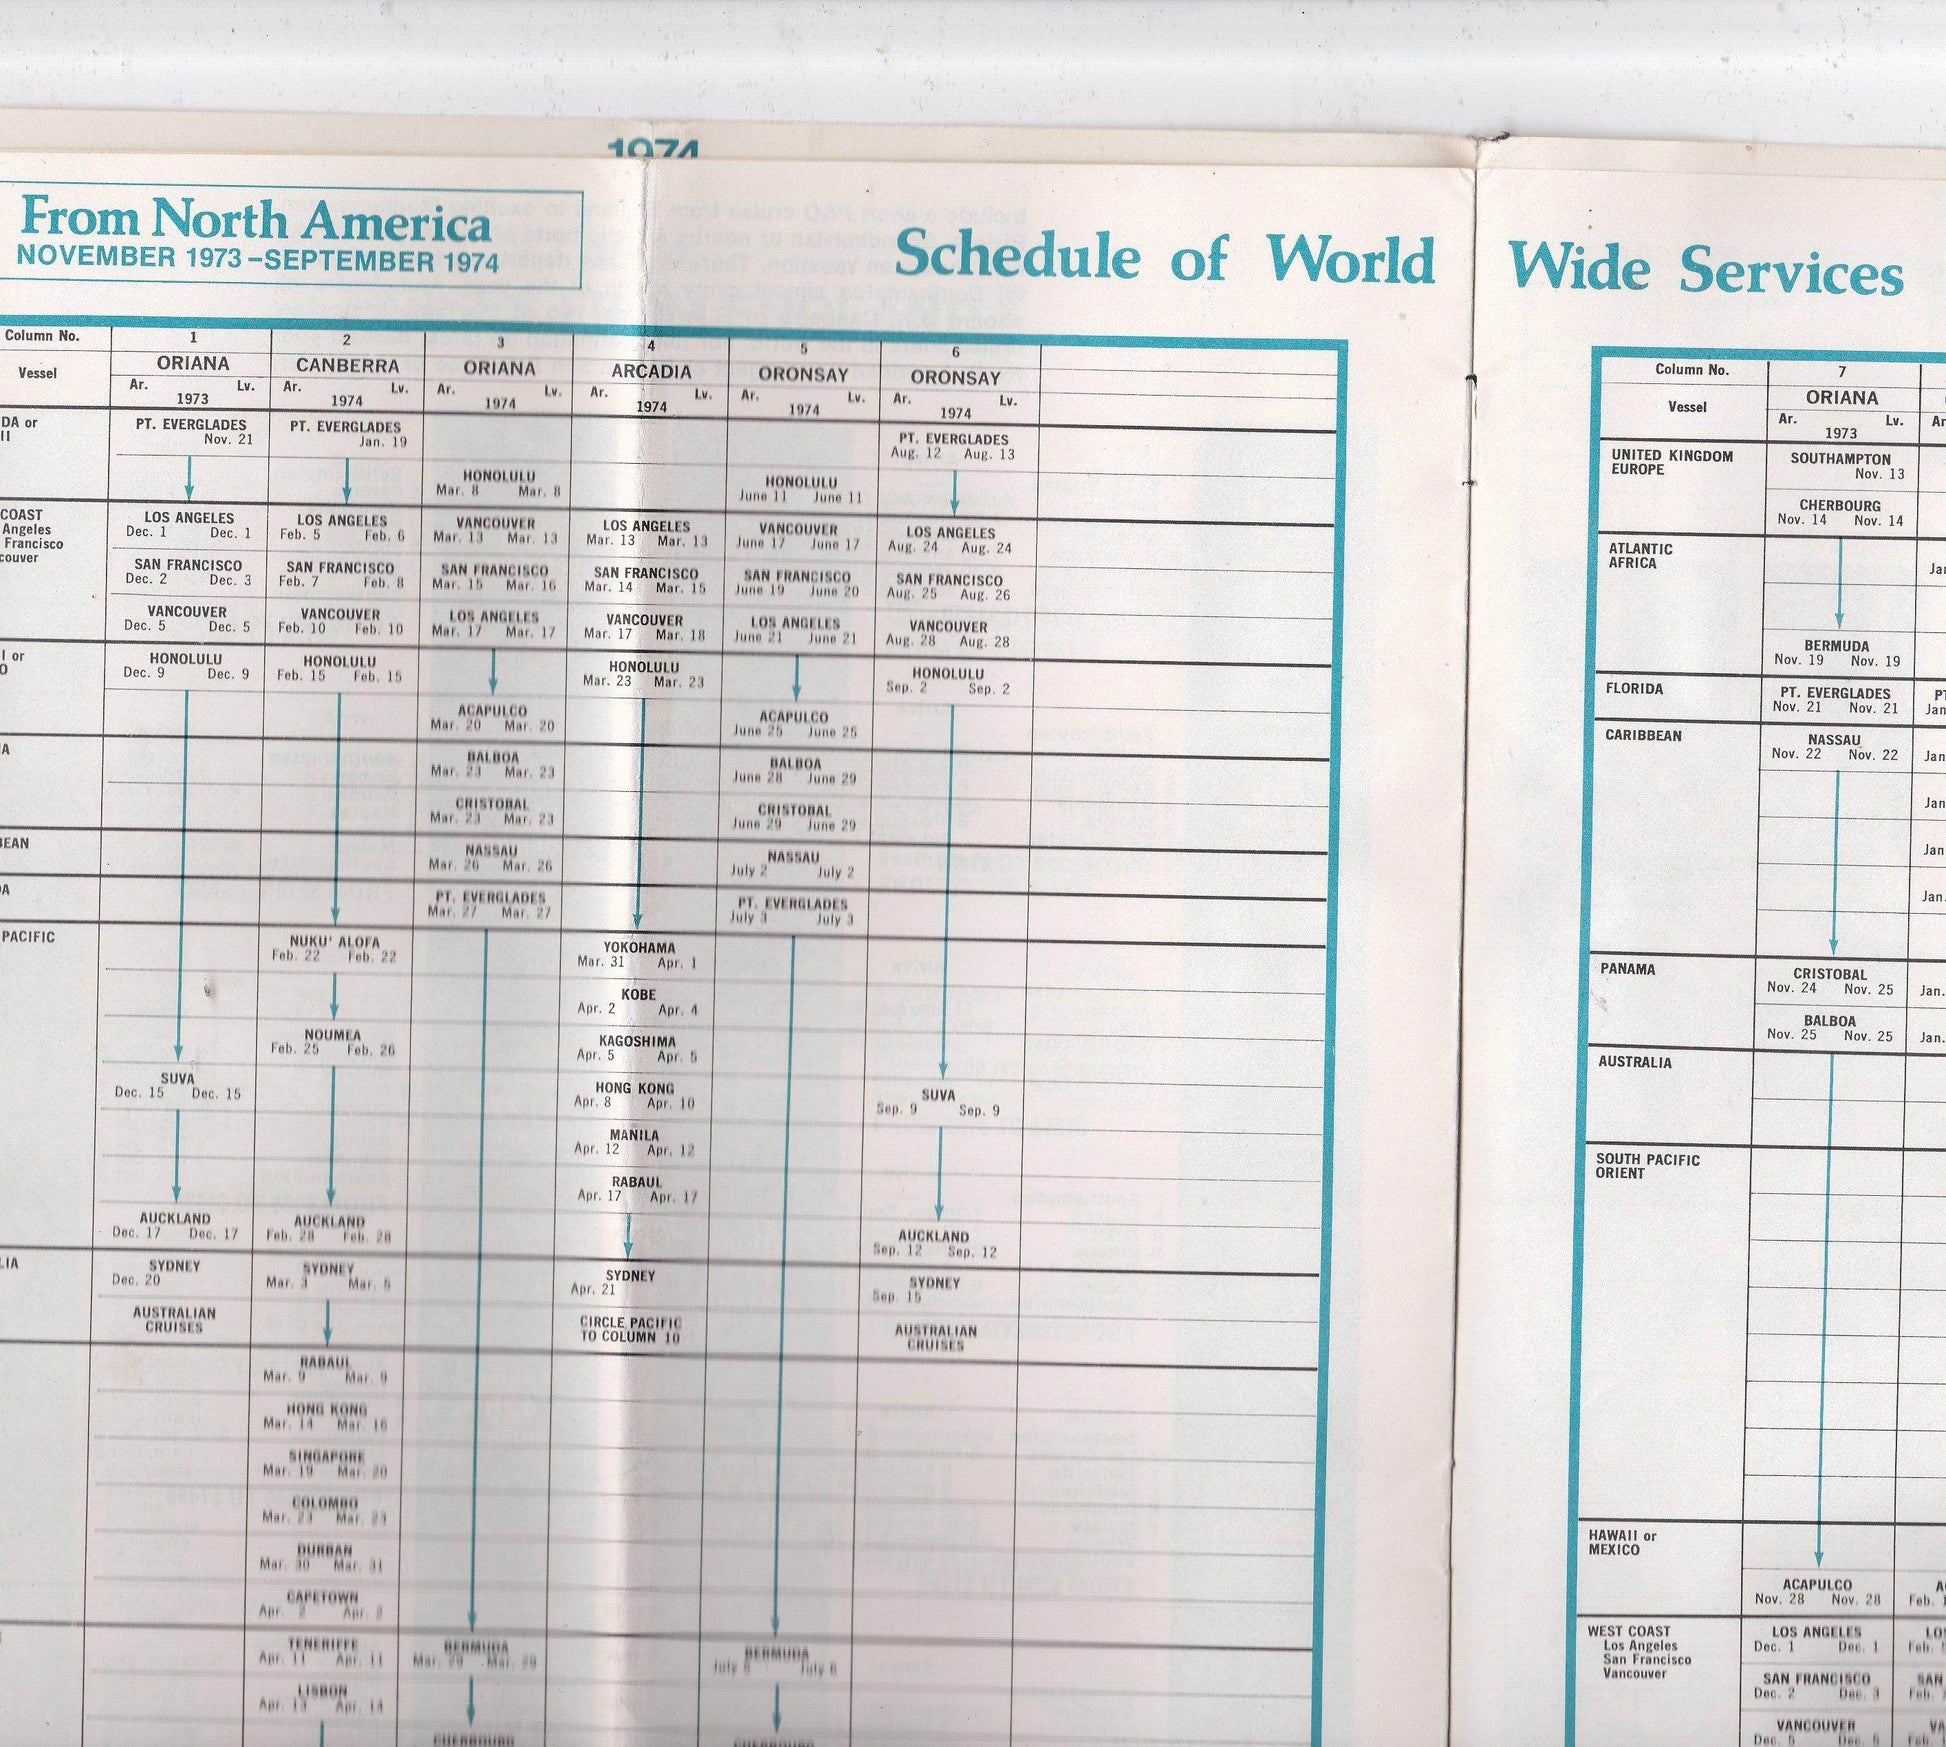 1974
From North America
NOVEMBER 1973–SEPTEMBER 1974
Schedule of World Wide Services
Column No.
Vessel
DA or
II
COAST
Angeles
Francisco
couver
I or
O
A
BEAN
DA
PACIFIC
LIA
1
ORIANA
Ar. Lv.
1973
PT. EVERGLADES
Nov. 21
LOS ANGELES
Dec. 1 Dec. 1
SAN FRANCISCO
Dec. 2 Dec. 3
VANCOUVER
Dec. 5 Dec. 5
HONOLULU
Dec. 9 Dec. 9
SUVA
Dec. 15 Dec. 15
AUCKLAND
Dec. 17 Dec. 17
SYDNEY
Dec. 20
AUSTRALIAN
CRUISES
2
CANBERRA
Ar. Lv.
1974
PT. EVERGLADES
Jan. 19
LOS ANGELES
Feb. 5 Feb. 6
SAN FRANCISCO
Feb. 7 Feb. 8
VANCOUVER
Feb. 10 Feb. 10
HONOLULU
Feb. 15 Feb. 15
NUKU' ALOFA
Feb. 22 Feb. 22
NOUMEA
Feb. 25 Feb. 26
AUCKLAND
Feb. 28 Feb. 28
SYDNEY
Mar. 3 Mar. 5
RABAUL
Mar. 9 Mar. 9
HONG KONG
Mar. 14 Mar. 16
SINGAPORE
Mar. 19 Mar. 20
COLOMBO
Mar. 23 Mar. 23
DURBAN
Mar. 30 Mar. 31
CAPETOWN
Apr. 2 Apr. 2
TENERIFFE
Apr. 11 Apr. 11
LISBON
Apr. 13 Apr. 14
3
ORIANA
Ar. Lv.
1974
HONOLULU
Mar. 8 Mar. 8
VANCOUVER
Mar. 13 Mar. 13
SAN FRANCISCO
Mar. 15 Mar. 16
LOS ANGELES
Mar. 17 Mar. 17
ACAPULCO
Mar. 20 Mar. 20
BALBOA
Mar. 23 Mar. 23
CRISTOBAL
Mar. 23 Mar. 23
NASSAU
Mar. 26 Mar. 26
PT. EVERGLADES
Mar. 27 Mar. 27
BERMUDA
Mar. 29 Mar. 29
CHERBOURG
4
ARCADIA
Ar. Lv.
1974
LOS ANGELES
Mar. 13 Mar. 13
SAN FRANCISCO
Mar. 14 Mar. 15
VANCOUVER
Mar. 17 Mar. 18
HONOLULU
Mar. 23 Mar. 23
YOKOHAMA
Mar. 31 Apr. 1
KOBE
Apr. 2 Apr. 4
KAGOSHIMA
Apr. 5 Apr. 5
HONG KONG
Apr. 8 Apr. 10
MANILA
Apr. 12 Apr. 12
RABAUL
Apr. 17 Apr. 17
SYDNEY
Apr. 21
CIRCLE PACIFIC
TO COLUMN 10
5
ORONSAY
Ar. Lv.
1974
HONOLULU
June 11 June 11
VANCOUVER
June 17 June 17
SAN FRANCISCO
June 19 June 20
LOS ANGELES
June 21 June 21
ACAPULCO
June 25 June 25
BALBOA
June 28 June 29
CRISTOBAL
June 29 June 29
NASSAU
July 2 July 2
PT. EVERGLADES
July 3 July 3
BERMUDA
July 6 July 6
CHERBOURG
6
ORONSAY
Ar. Lv.
1974
PT. EVERGLADES
Aug. 12 Aug. 13
LOS ANGELES
Aug. 24 Aug. 24
SAN FRANCISCO
Aug. 25 Aug. 26
VANCOUVER
Aug. 28 Aug. 28
HONOLULU
Sep. 2 Sep. 2
SUVA
Sep. 9 Sep. 9
AUCKLAND
Sep. 12 Sep. 12
SYDNEY
Sep. 15
AUSTRALIAN
CRUISES
Column No.
Vessel
UNITED KINGDOM
EUROPE
ATLANTIC
AFRICA
FLORIDA
CARIBBEAN
PANAMA
AUSTRALIA
SOUTH PACIFIC
ORIENT
HAWAII or
MEXICO
WEST COAST
Los Angeles
San Francisco
Vancouver
7
ORIANA
Ar. Lv.
1973
SOUTHAMPTON
Nov. 13
CHERBOURG
Nov. 14 Nov. 14
BERMUDA
Nov. 19 Nov. 19
PT. EVERGLADES
Nov. 21 Nov. 21
NASSAU
Nov. 22 Nov. 22
CRISTOBAL
Nov. 24 Nov. 25
BALBOA
Nov. 25 Nov. 25
ACAPULCO
Nov. 28 Nov. 28
LOS ANGELES
Dec. 1 Dec. 1
SAN FRANCISCO
Dec. 2 Dec. 3
VANCOUVER
Dec. 5 Dec. 5
Ar
Ja
PT
Jan
Jan
Jan
Jan
Jan.
Jan.
Jan.
A
Feb. 1
LO
Feb.
SAN
Feb.
VA
Feb.